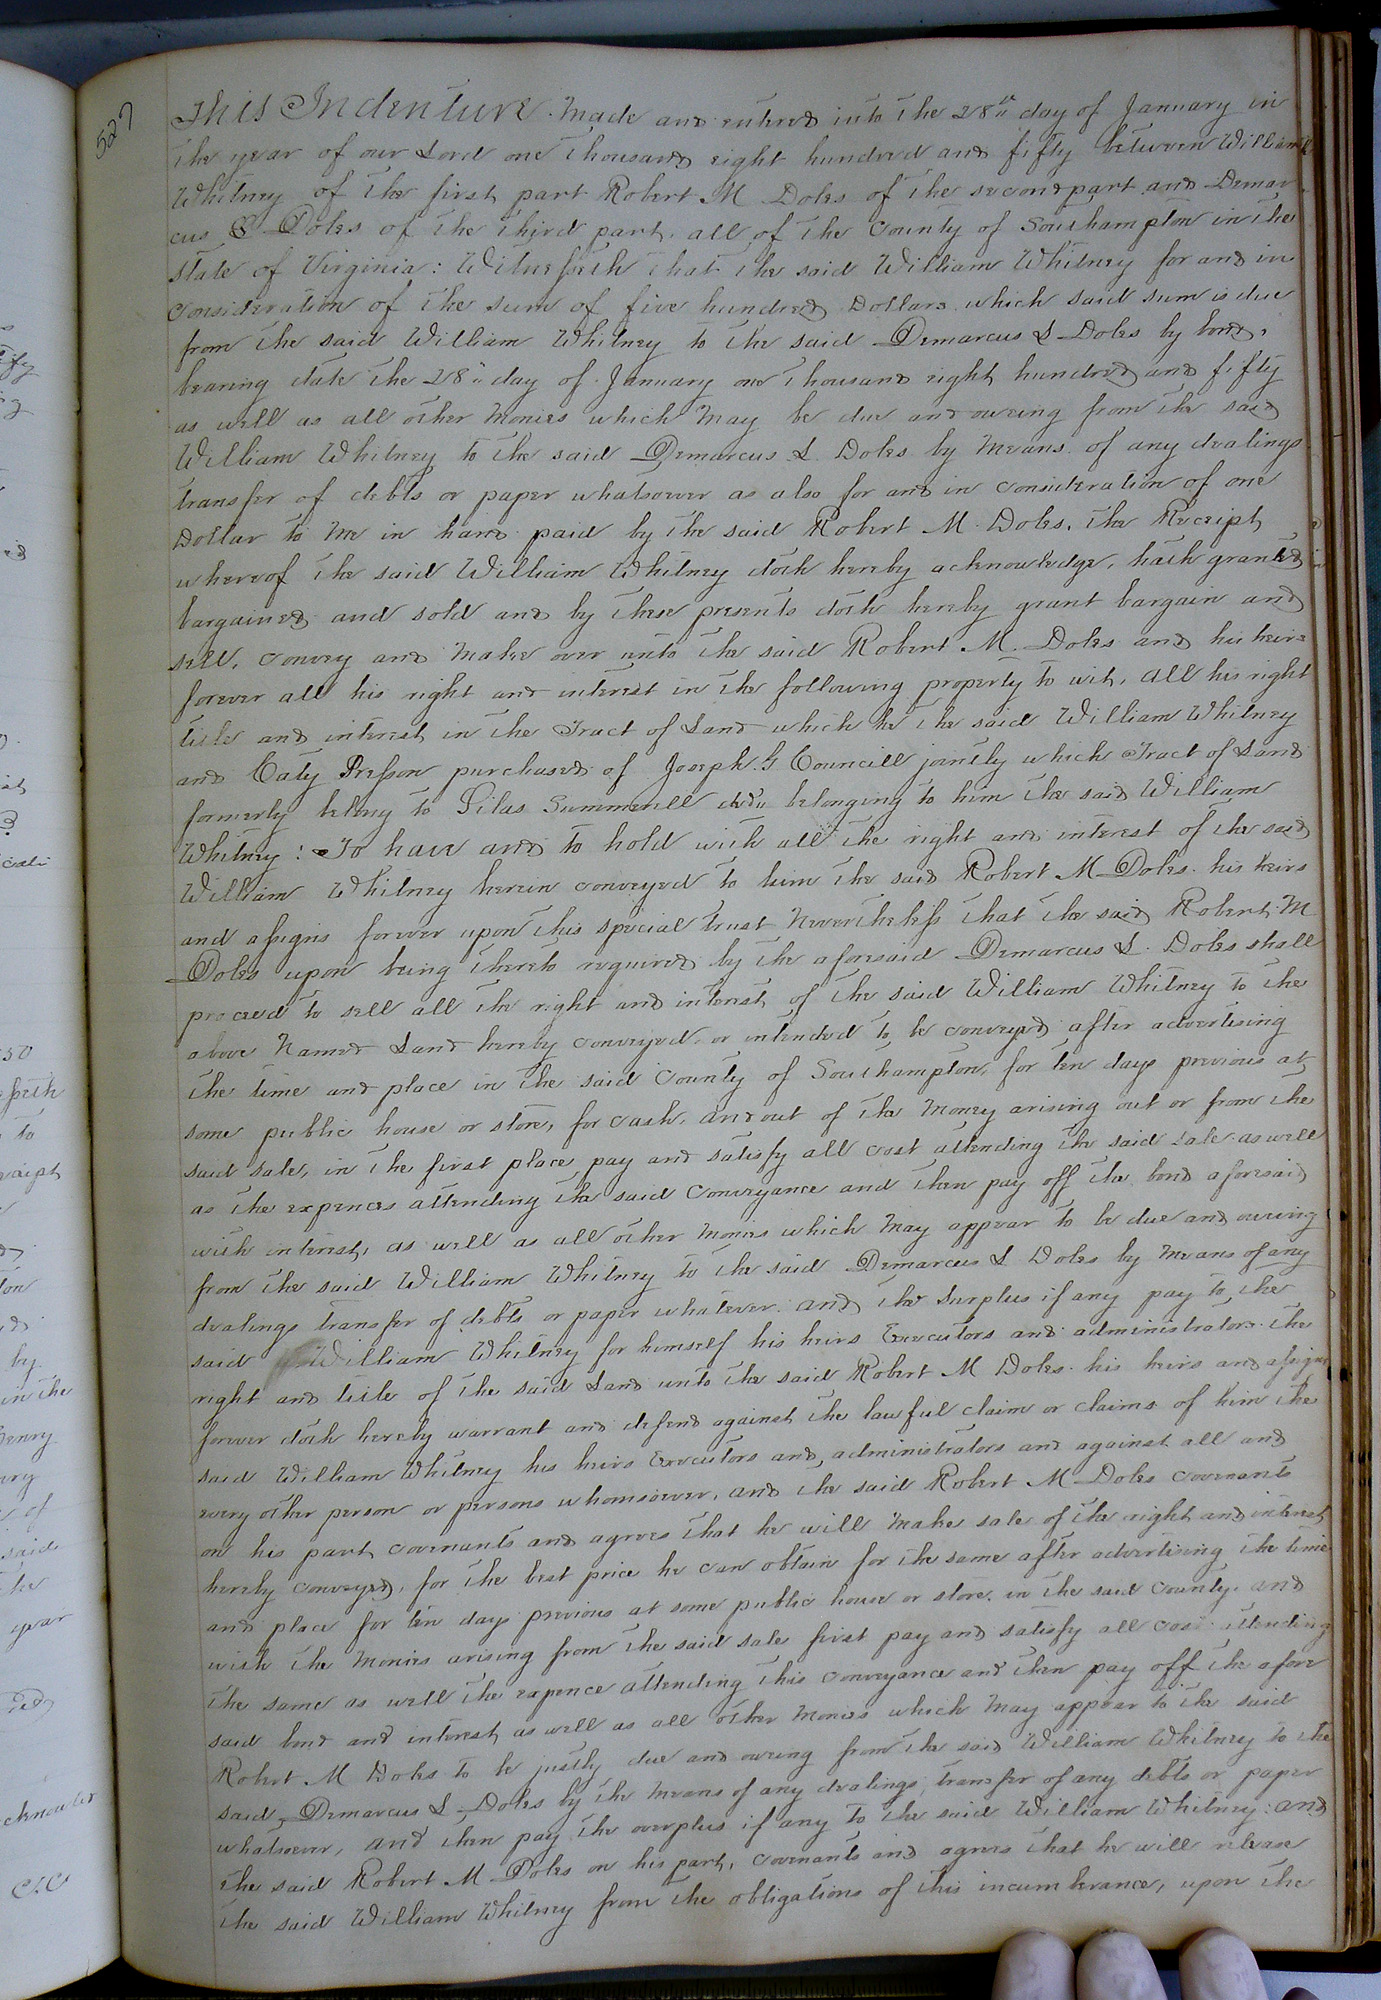 527
This Indenture Made and entered into the 28th day of January in
the year of our Lord one thousand eight hundred and fifty between William
Whitney of the first part Robert M Doles of the second part and Demar
cus S Doles of the third part, all of the County of Southampton in the
state of Virginia: Witnesseth that the said William Whitney for and in
consideration of the sum of five hundred Dollars which said sum is due
from the said William Whitney to the said Demarcus S Doles by bond,
bearing date the 28th day of January one thousand eight hundred and fifty
as well as all other monies which may be due and oweing from the said
William Whitney to the said Demarcus S. Doles by means of any dealings
transfer of debts or paper whatsoever as also for and in consideration of one
Dollar to me in hand paid by the said Robert M. Doles, the Receipt
whereof the said William Whitney doth hereby acknowledge, hath granted
bargained and sold and by these presents doth hereby grant bargain and
sell, convey and make over unto the said Robert M. Doles and his heirs
forever all his right and interest in the following property to wit, all his right
title and interest in the Tract of Land which he the said William Whitney
and Caty Presson purchased of Joseph. G Councill jointly which Tract of Land
formerly belong to Silas Summerell decd. belonging to him the said William
Whitney: To have and to hold with all the right and interest of the said
William Whitney herein conveyed to him the said Robert M Doles his heirs
and assigns forever upon this special trust nevertheless that the said Robert M
Doles upon being thereto required by the aforesaid Demarcus S. Doles shall
proceed to sell all the right and interest of the said William Whitney to the
above named Land hereby conveyed or intended to be conveyed after advertising
the time and place in the said County of Southampton, for ten days previous at
some public house or store, for cash, and out of the money arising out or from the
said sale, in the first place pay and satisfy all cost attending the said sale as well
as the expences attending the said conveyance and then pay off the bond aforesaid
with interest, as well as all other monies which may appear to be due and oweing
from the said William Whitney to the said Demarcus S Doles by means of any
dealings transfer of debts or paper whatever and the surplus if any pay to the
said William Whitney for himself his heirs Executors and administrators the
right and title of the said Land unto the said Robert M Doles his heirs and assigns
forever doth hereby warrant and defend against the lawful claim or claims of him the
said William Whitney his heirs Executors and administrators and against all and
every other person or persons whomsoever, and the said Robert M Doles covenants
on his part covenants and agrees that he will make sale of the right and interest
hereby conveyed, for the best price he can obtain for the same after advertising the time
and place for ten days previous at some public house or store in the said county. and
with the monies arising from the said sale first pay and satisfy all cost attending
the same as well the expence attending this conveyance and then pay off the afore
said bond and interest as well as all other monies which may appear to the said
Robert M Doles to be justly due and owing from the said William Whitney to the
said Demarcus S Doles by the means of any dealings transfer of any debts or paper
whatsoever, and then pay the overplus if any to the said William Whitney: and
the said Robert M Doles on his part, covenants and agrees that he will release
the said William Whitney from the obligations of this incumberance, upon the